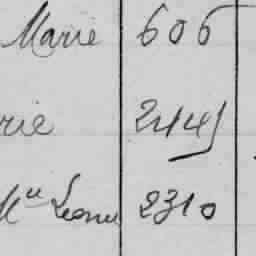 Marie 606
rie 2441
Mlle Leonie 2310